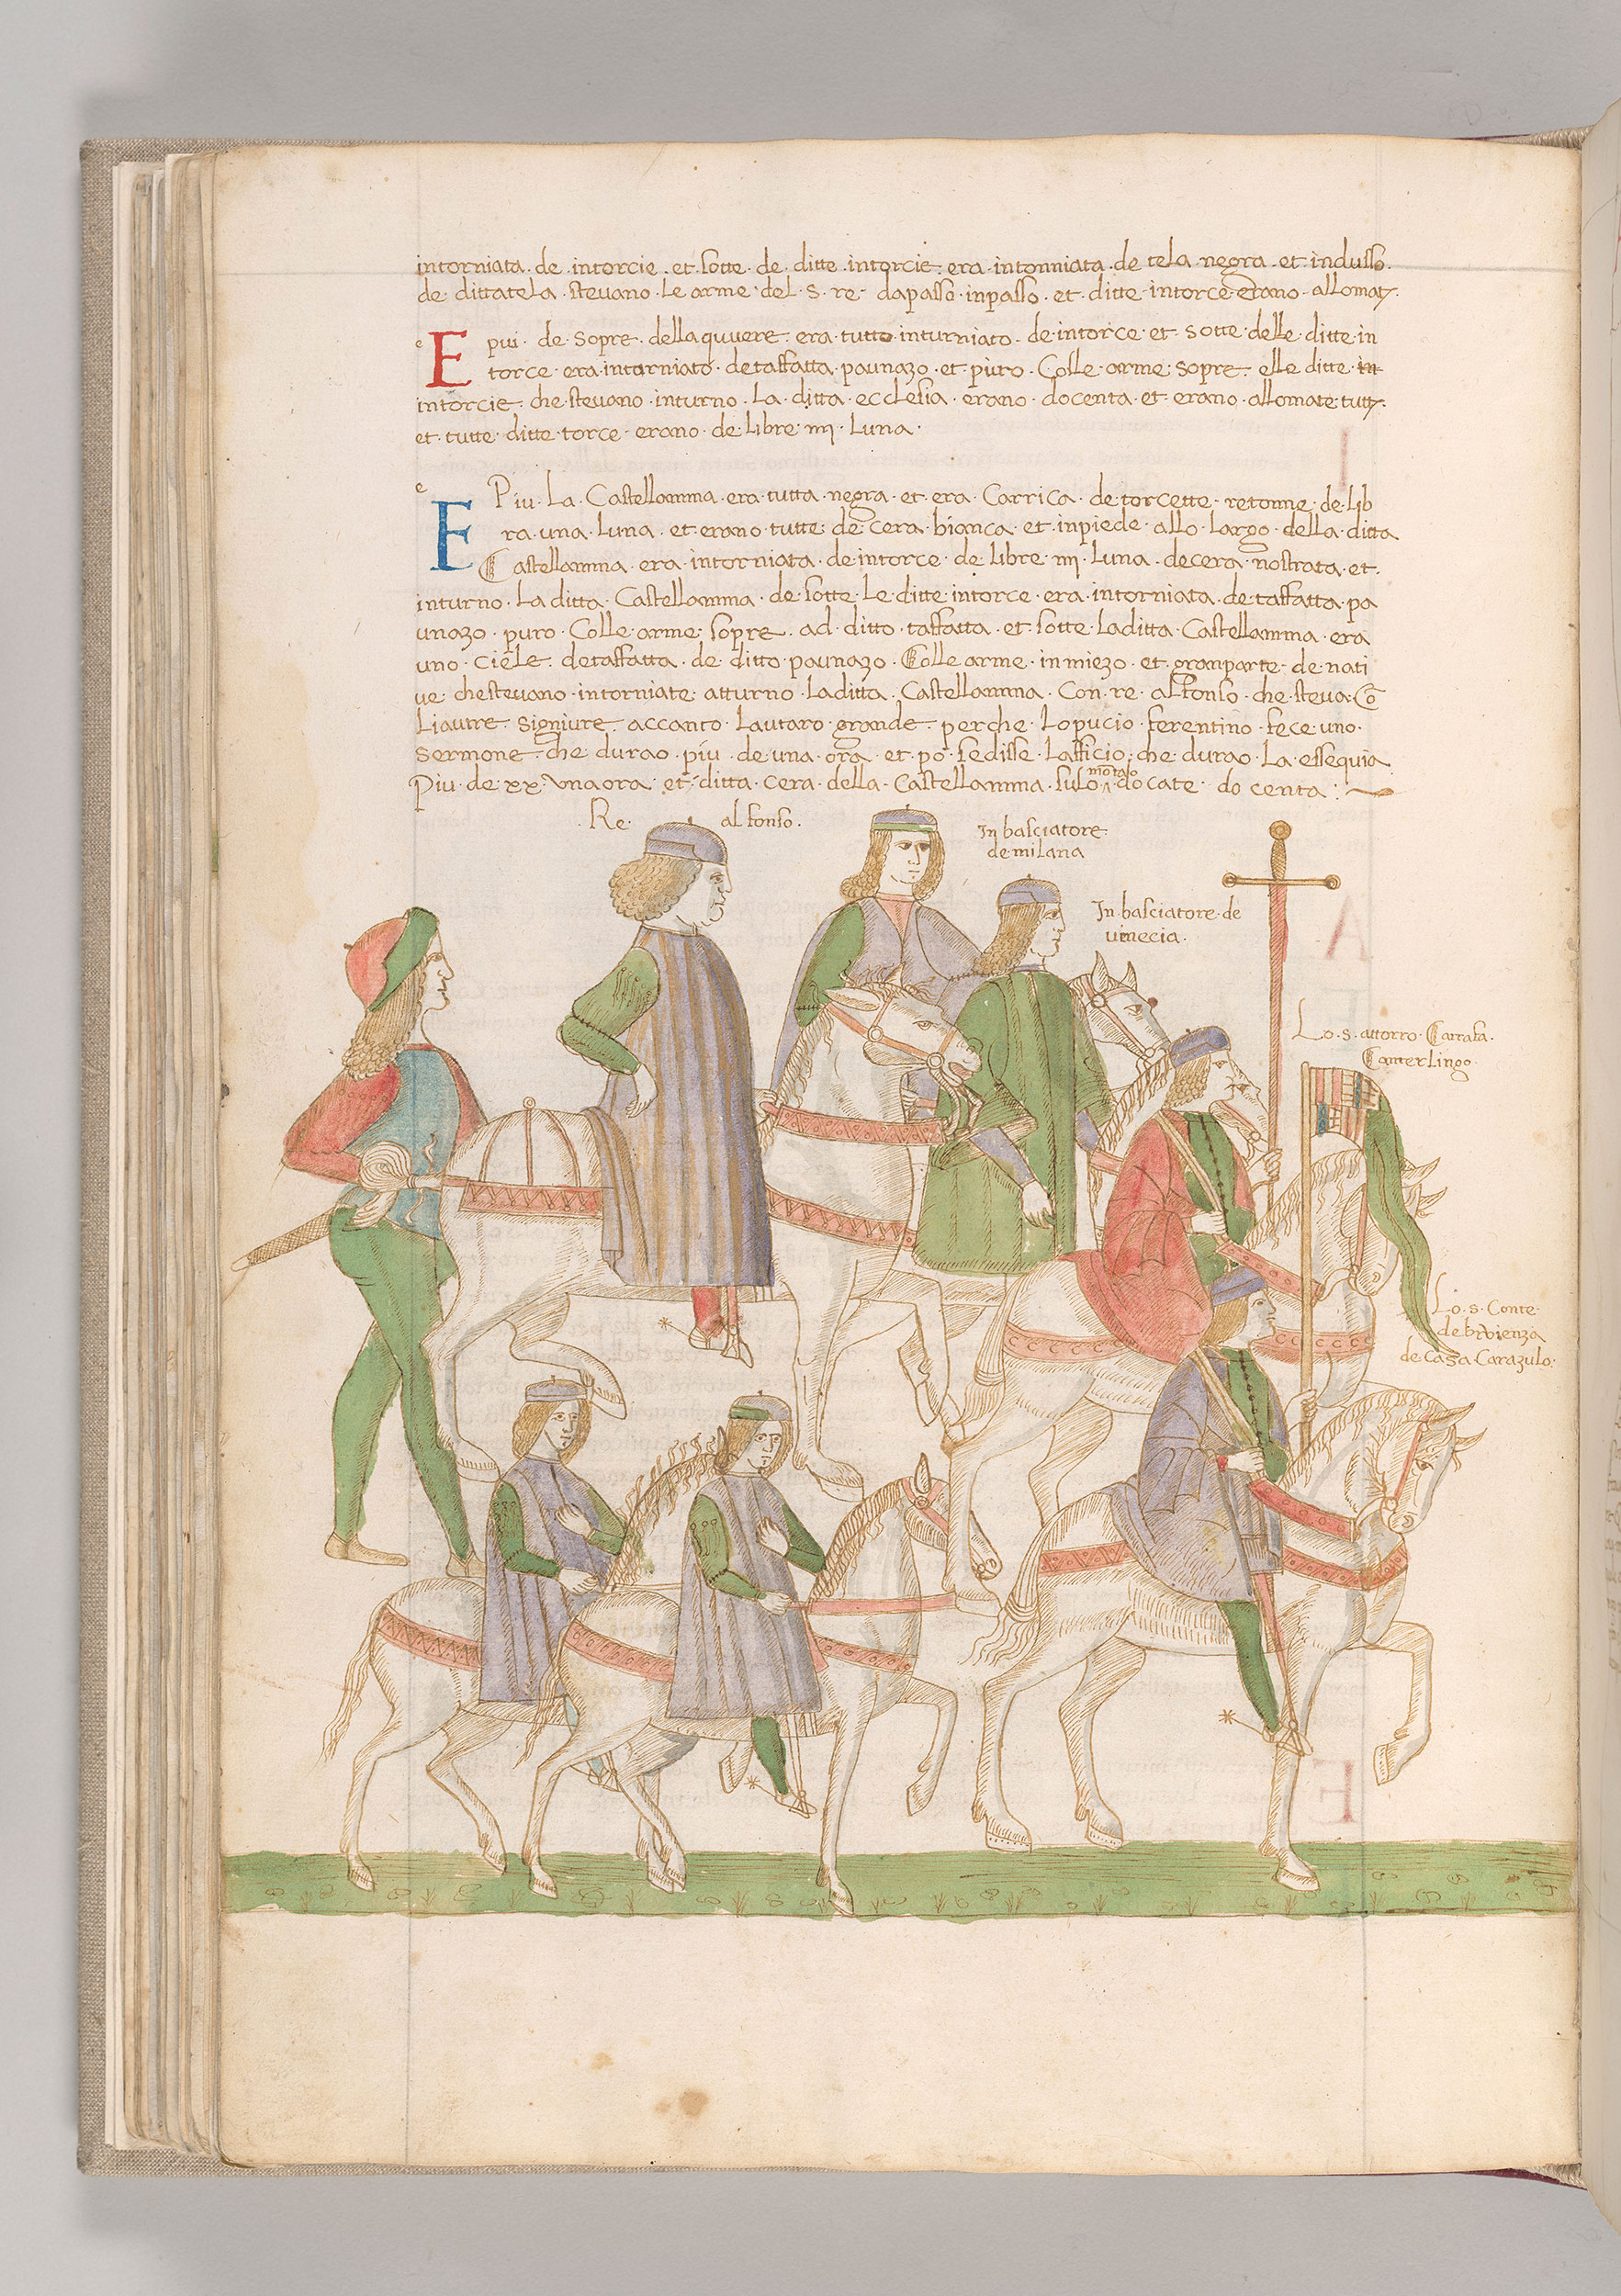 intorniata · de · intorcie · et · sotte · de · ditte · intorcie · era · intonniata · de tela · negra · et indusso ·
de dittatela · stevano · le arme · del · s · re · dapasso · inpasso · et · ditte · intorce erano · allomaty ·
e E pui · de sopre · della quvere · era · tutto inturniato · de intorce · et · sotte · delle · ditte · in
torce · era inturniato · detaffatta · paunazo · et · puro · Colle · arme · sopre · elle · ditte · in
intorcie · che stevano · inturno · la · ditta · ecclesia · erano · docenta · et · erano · allomate · tutty ·
et · tutte · ditte · torce · erano · de · libre · iiii · luna ·
e E Piu · la · Castellamma · era · tutta · negra · et · era · Carrica · de · torcette · retonne · de · lib
ra · una · luna · et · erano · tutte · de · cera · bianca · et · inpiede · allo · largo · della · ditta
Castellamma · era · intorniata · de intorce · de libre · iiii · luna · decera · nostrata · et ·
inturno · la ditta · Castellamma · de · sotte · le ditte intorce · era · intorniata · de taffatta · pa
unazo · puro · Colle · arme · sopre · ad · ditto · taffatta · et · sotte · laditta · Castellamma · era
uno · ciele · detaffatta · de · ditto · paunazo · Colle arme · inmiezo · et · granparte · de · nati
ve · chestevano · intorniate · atturno · laditta · Castellamma · Con · re · alfonso · che · steva · Co
li autre · signiure · accanto · lautaro · grande · perche · lo pucio · ferentino · fece · uno ·
sermone · che durao · piu · de · una · ora · et · po · se disse · lafficio · che durao · la · essequia
Piu · de xx · una ora · et · ditta · cera · della · Castellamma · sulo montaro docate · do centa :
Re · alfonso ·
In basciatore
de milana
In · basciatore · de
uinecia ·
Lo · s · attorro · Carrafa ·
Camerlingo ·
Lo · s · Conte ·
de brienza
de Casa · Carazulo ·